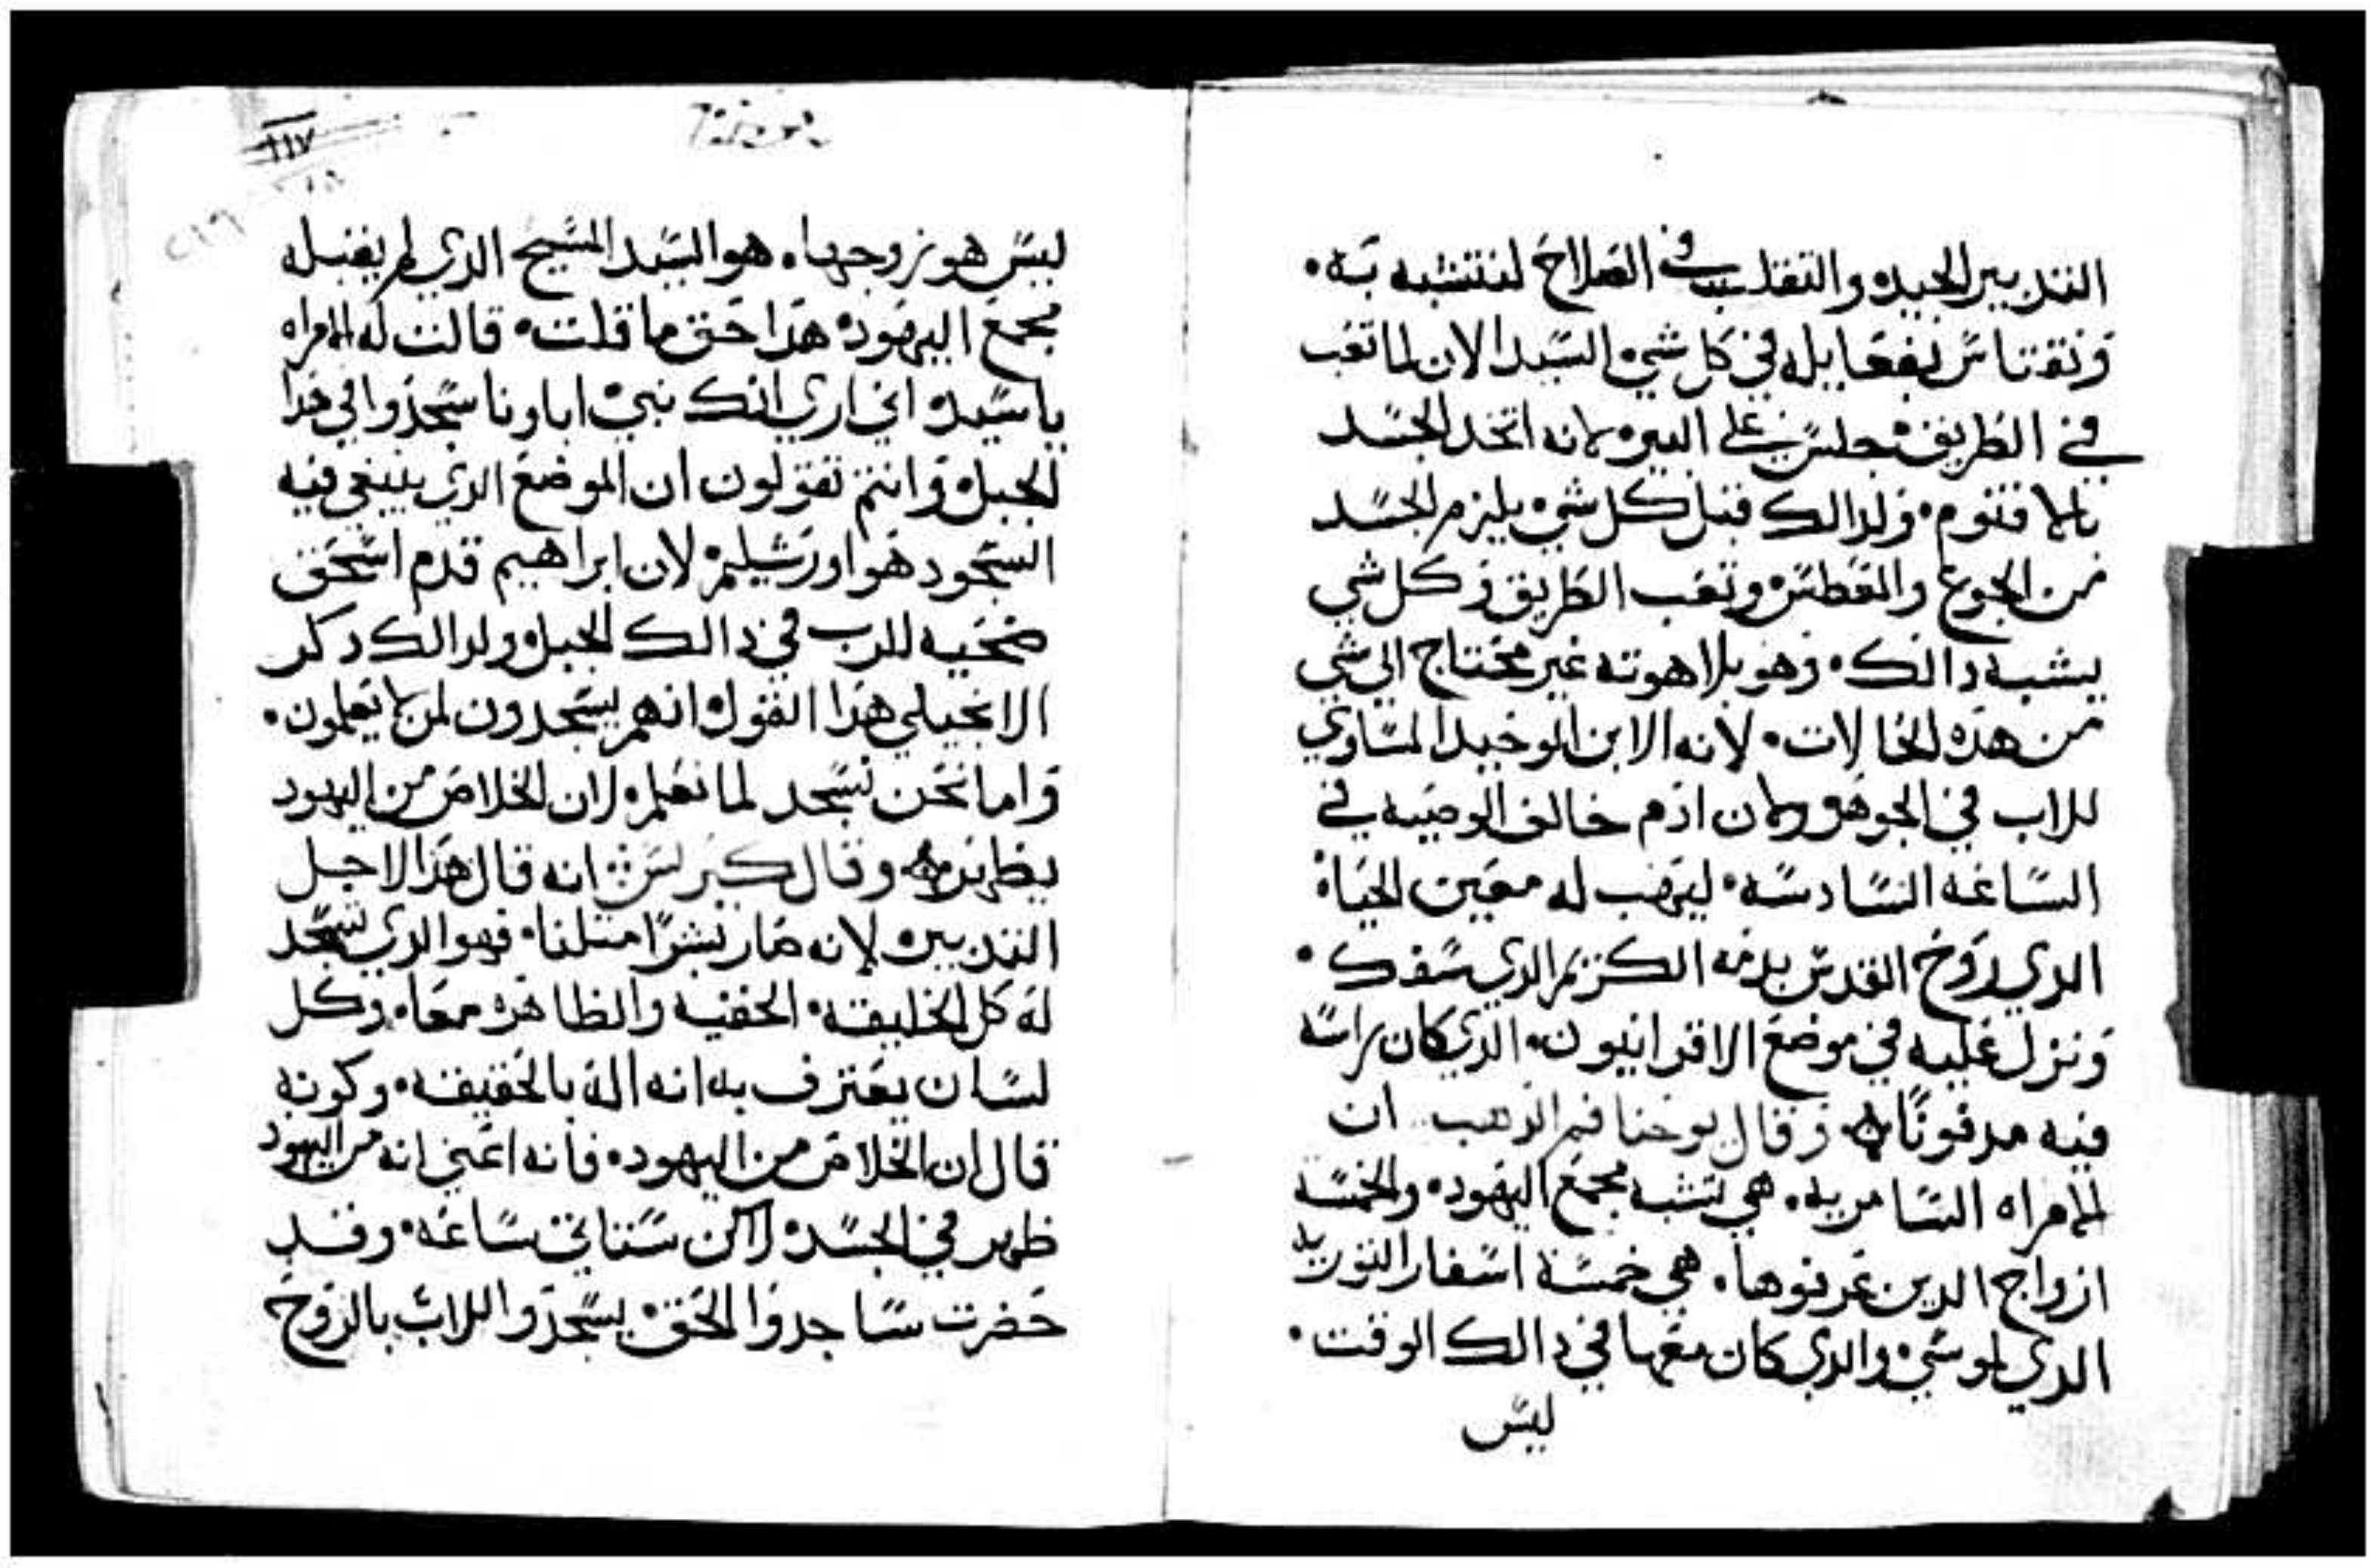 التدبير الجيده والتقلب في الصلاح لنتشبه به •
ونقتاس بفعايله في كل شي • السيد الان لما تعب
في الطريق • جلس على البير • لانه اتخد الجسد
بالاقنوم • ولدالك قبل كل شي • يلزم الجسد
من الجوع والعطش • وتعب الطريق وكل شي
يشبه دالك • وهو بلاهوته غير محتاج الي شي
من هده الحالات • لانه الابن الوحيد المساوي
للاب في الجوهر ولان ادم خالف الوصيه في
الساعه السادسه • ليهب له معين الحياه
الدي روح القدس بدمه الكريم الدي سفك •
ونزل عليه في موضع الاقرانيون • الدي كان راسه
فيه مدفونًا وقال يوحنا فم الدهب ان
الامراه السامريه • هي تشبه مجمع اليهود • والخمسه
ازواج الدين عرفوها • هي خمسة اسفار التوريه
الدي لموسي • والدي كان معها في دالك الوقت •
ليس
١١٧
ليس هو زوجها • هو السيد المسيح الدي لم يقبله
مجمع اليهود • هدا حق ما قلت • قالت له الامراه
ياسيد • اني اري انك نبي • اباونا سجدوا في هدا
الجبل • وانتم تقولون ان الموضع الدي ينبغي فيه
السجود هو اورشليم • لان ابراهيم قدم اسحق
ضحيه للرب في دالك الجبل • ولدالك دكر
الانجيلي هدا القول • انهم يسجدون لمن لا يعلمون •
واما نحن نسجد لما نعلم • لان الخلاص من اليهود
يظهر وقال كيرلس انه قال هدا لاجل
التدبير • لانه صار بشرًا متلنا • فهو الدي تسجد
له كل الخليقه • الخفيه والظاهره معا • وكل
لسان يعترف به انه اله بالحقيقه • وكونه
قال ان الخلاص من اليهود • فانه اعني انه من اليهود
ظهر في الجسد • لاكن ستاتي ساعه • وقد
حضرت ساجدوا الحق • يسجدوا للاب بالروح